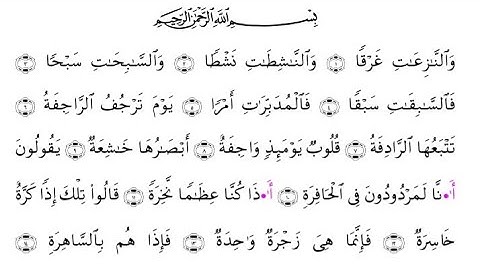 بِسْمِ ٱللَّهِ ٱلرَّحْمَٰنِ ٱلرَّحِيمِ
وَٱلنَّٰزِعَٰتِ غَرْقًا ۝١ وَٱلنَّٰشِطَٰتِ نَشْطًا ۝٢ وَٱلسَّٰبِحَٰتِ سَبْحًا ۝٣
فَٱلسَّٰبِقَٰتِ سَبْقًا ۝٤ فَٱلْمُدَبِّرَٰتِ أَمْرًا ۝٥ يَوْمَ تَرْجُفُ ٱلرَّاجِفَةُ ۝٦
تَتْبَعُهَا ٱلرَّادِفَةُ ۝٧ قُلُوبٌ يَوْمَئِذٍ وَاجِفَةٌ ۝٨ أَبْصَٰرُهَا خَٰشِعَةٌ ۝٩ يَقُولُونَ
أَ•نَّا لَمَرْدُودُونَ فِى ٱلْحَافِرَةِ ۝١٠ أَ•ذَا كُنَّا عِظَٰمًا نَّخِرَةً ۝١١ قَالُوا۟ تِلْكَ إِذًا كَرَّةٌ
خَاسِرَةٌ ۝١٢ فَإِنَّمَا هِىَ زَجْرَةٌ وَٰحِدَةٌ ۝١٣ فَإِذَا هُم بِٱلسَّاهِرَةِ ۝١٤